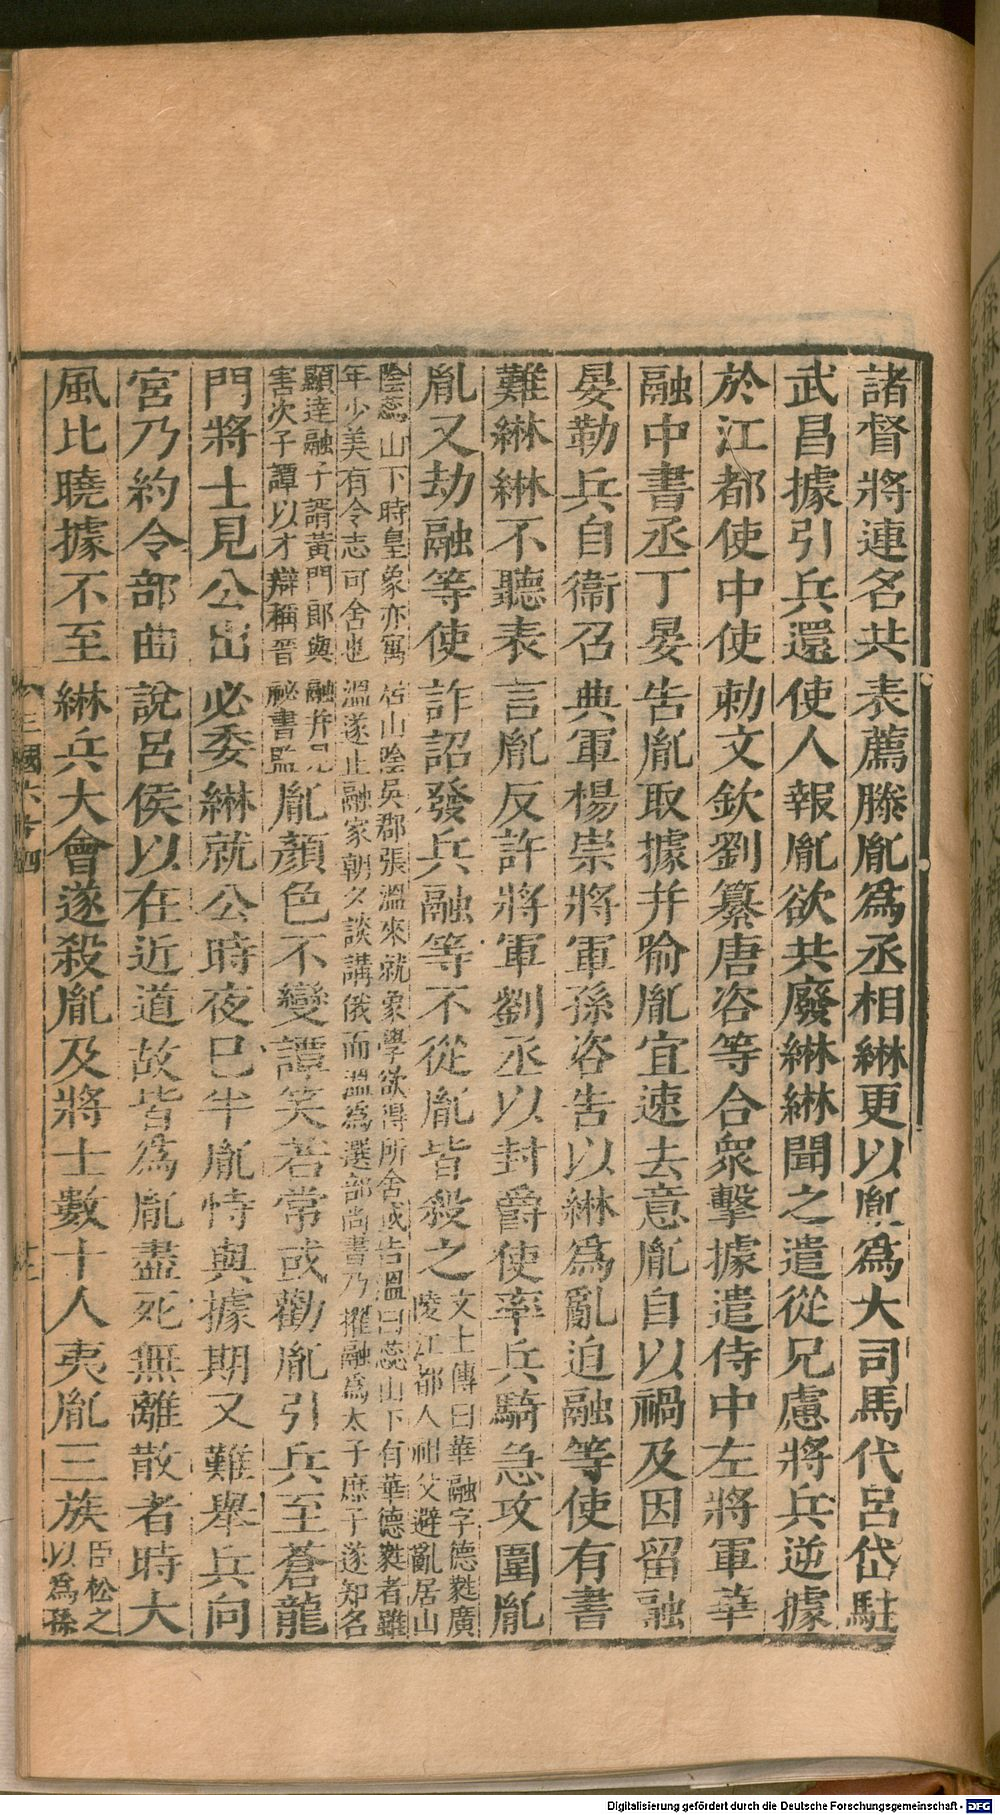 諸督將連名共表薦滕胤爲丞相綝更以胤爲大司馬代呂岱駐
武昌據引兵還使人報胤欲共廢綝綝聞之遣從兄慮將兵逆據
於江都使中使勅文欽劉纂唐咨等合衆擊據遣侍中左將軍華
融中書丞丁晏告胤取據并喻胤宜速去意胤自以禍及因留融
晏勒兵自衞召典軍楊崇將軍孫咨告以綝爲亂迫融等使有書
難綝綝不聽表言胤反許將軍劉丞以封爵使率兵騎急攻圍胤
胤又劫融等使詐詔發兵融等不從胤皆殺之
文士傳曰華融字德蕤廣
陵江都人祖父避亂居山
陰蕊山下時皇象亦寓居山陰吳郡張溫來就象學欲得所舍或告溫曰蕊山下有華德蕤者雖
年少美有令志可舍也溫遂止融家朝夕談講俄而溫爲選部尚書乃擢融爲太子庶子遂知名
顯達融子諝黃門郎與融并見
害次子譚以才辯稱晉祕書監
胤顏色不變譚笑若常或勸胤引兵至蒼龍
門將士見公出必委綝就公時夜已半胤恃與據期又難舉兵向
宮乃約令部曲說呂侯以在近道故皆爲胤盡死無離散者時大
風比曉據不至綝兵大會遂殺胤及將士數十人夷胤三族
臣松之
以爲孫
三國六十四
Digitalisierung gefördert durch die Deutsche Forschungsgemeinschaft - DFG